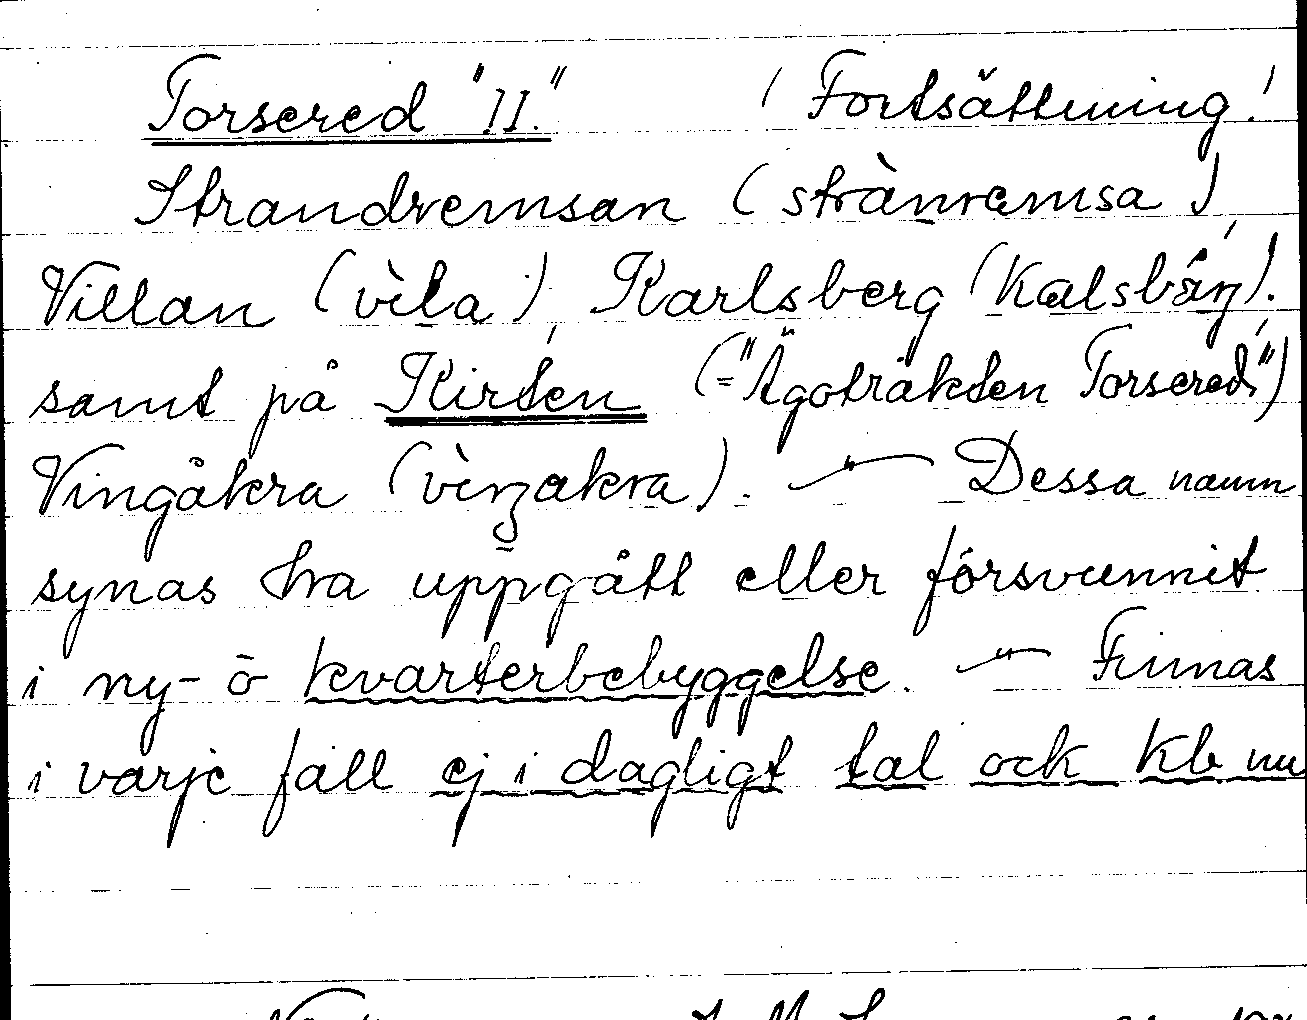 Torsered "II." / Fortsättning!
Strandremsan (strànremsa),
Villan (vìla), Karlsberg (Kalsbärj),
samt på Kirten (="Ägotrakten Torsered")
Vingåkra (vìŋakra). — Dessa namn
synas hva uppgått eller försvunnit
i ny- o kvarterbebyggelse. — Finnas
i varje fall ej i dagligt tal ock kb nu